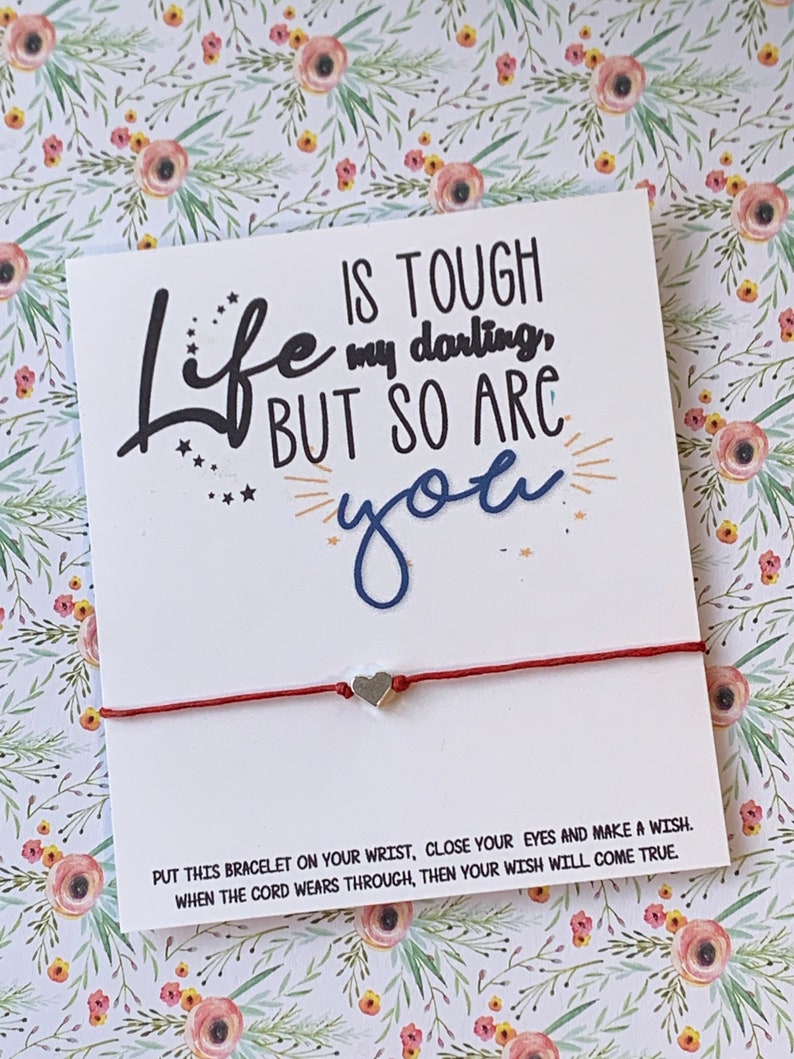 Life IS TOUGH
my darling,
BUT SO ARe
you
PUT THIS BRACELET ON YOUR WRIST, CLOSE YOUR EYES AND MAKE A WISH.
WHEN THE CORD WEARS THROUGH, THEN YOUR WISH WILL COME TRUE.